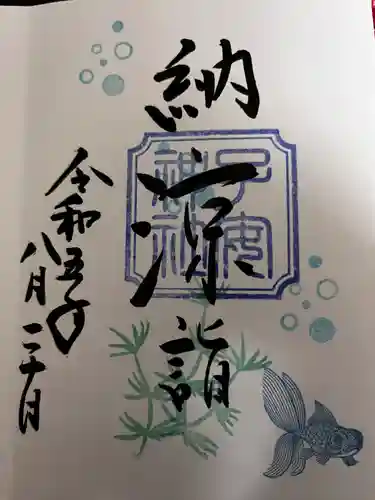 納涼詣
子安
神社
令和五年
八月二十日